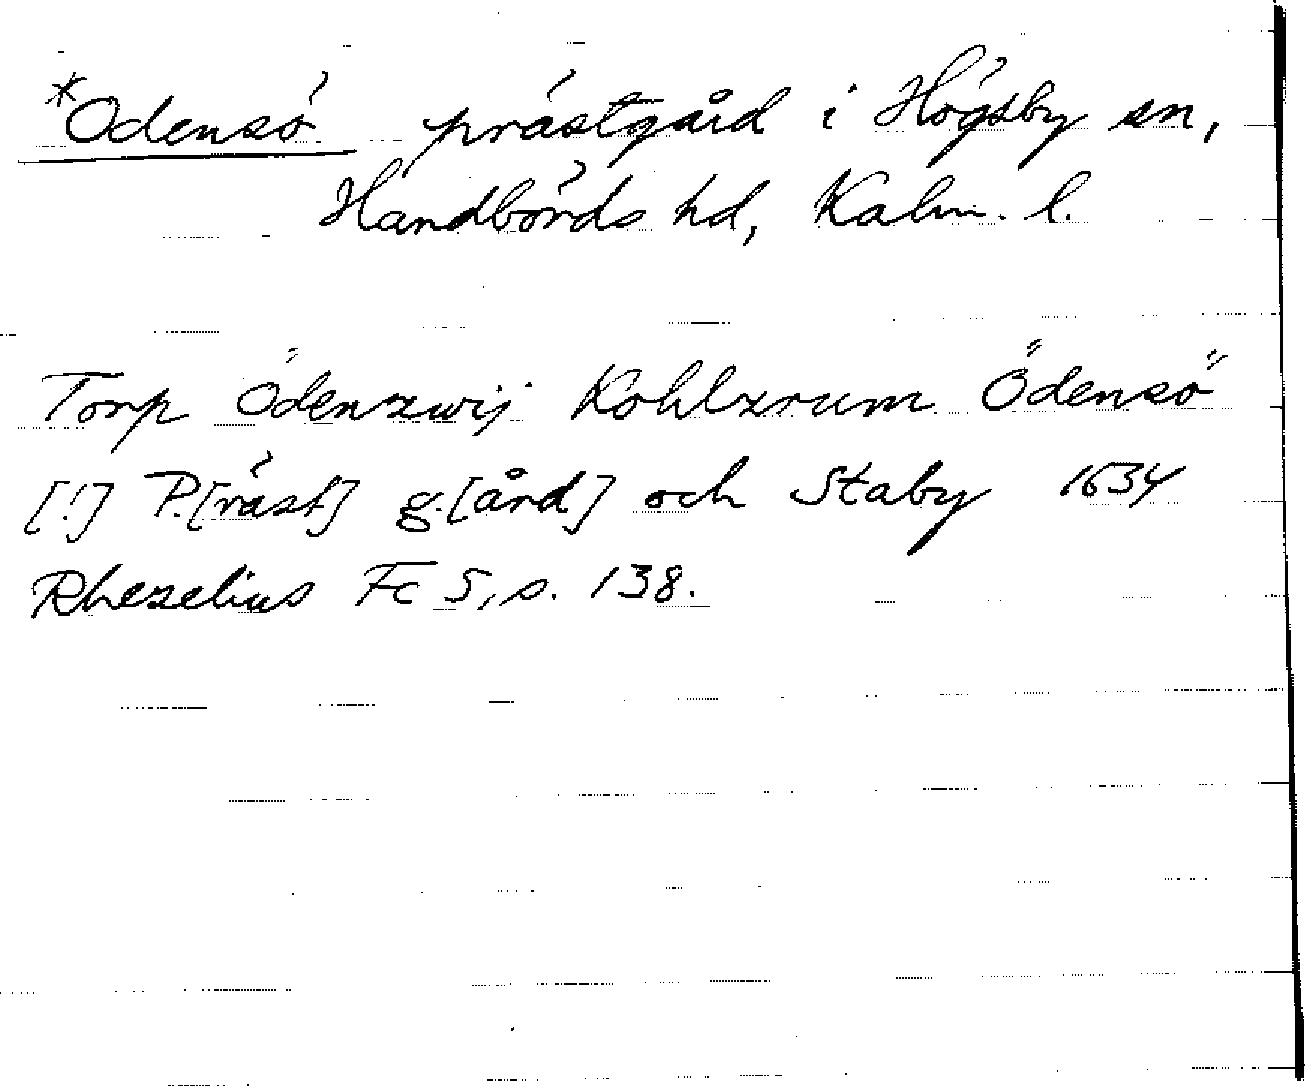 *Odensö prästgård i Högsby sn,
Handbörds hd, Kalm. l.
Torp Ödenzwij Kohlzrum Ödensö
[!] P.[räst] g.[ård] och Staby 1634
Rhezelius Fc 5, s. 138.